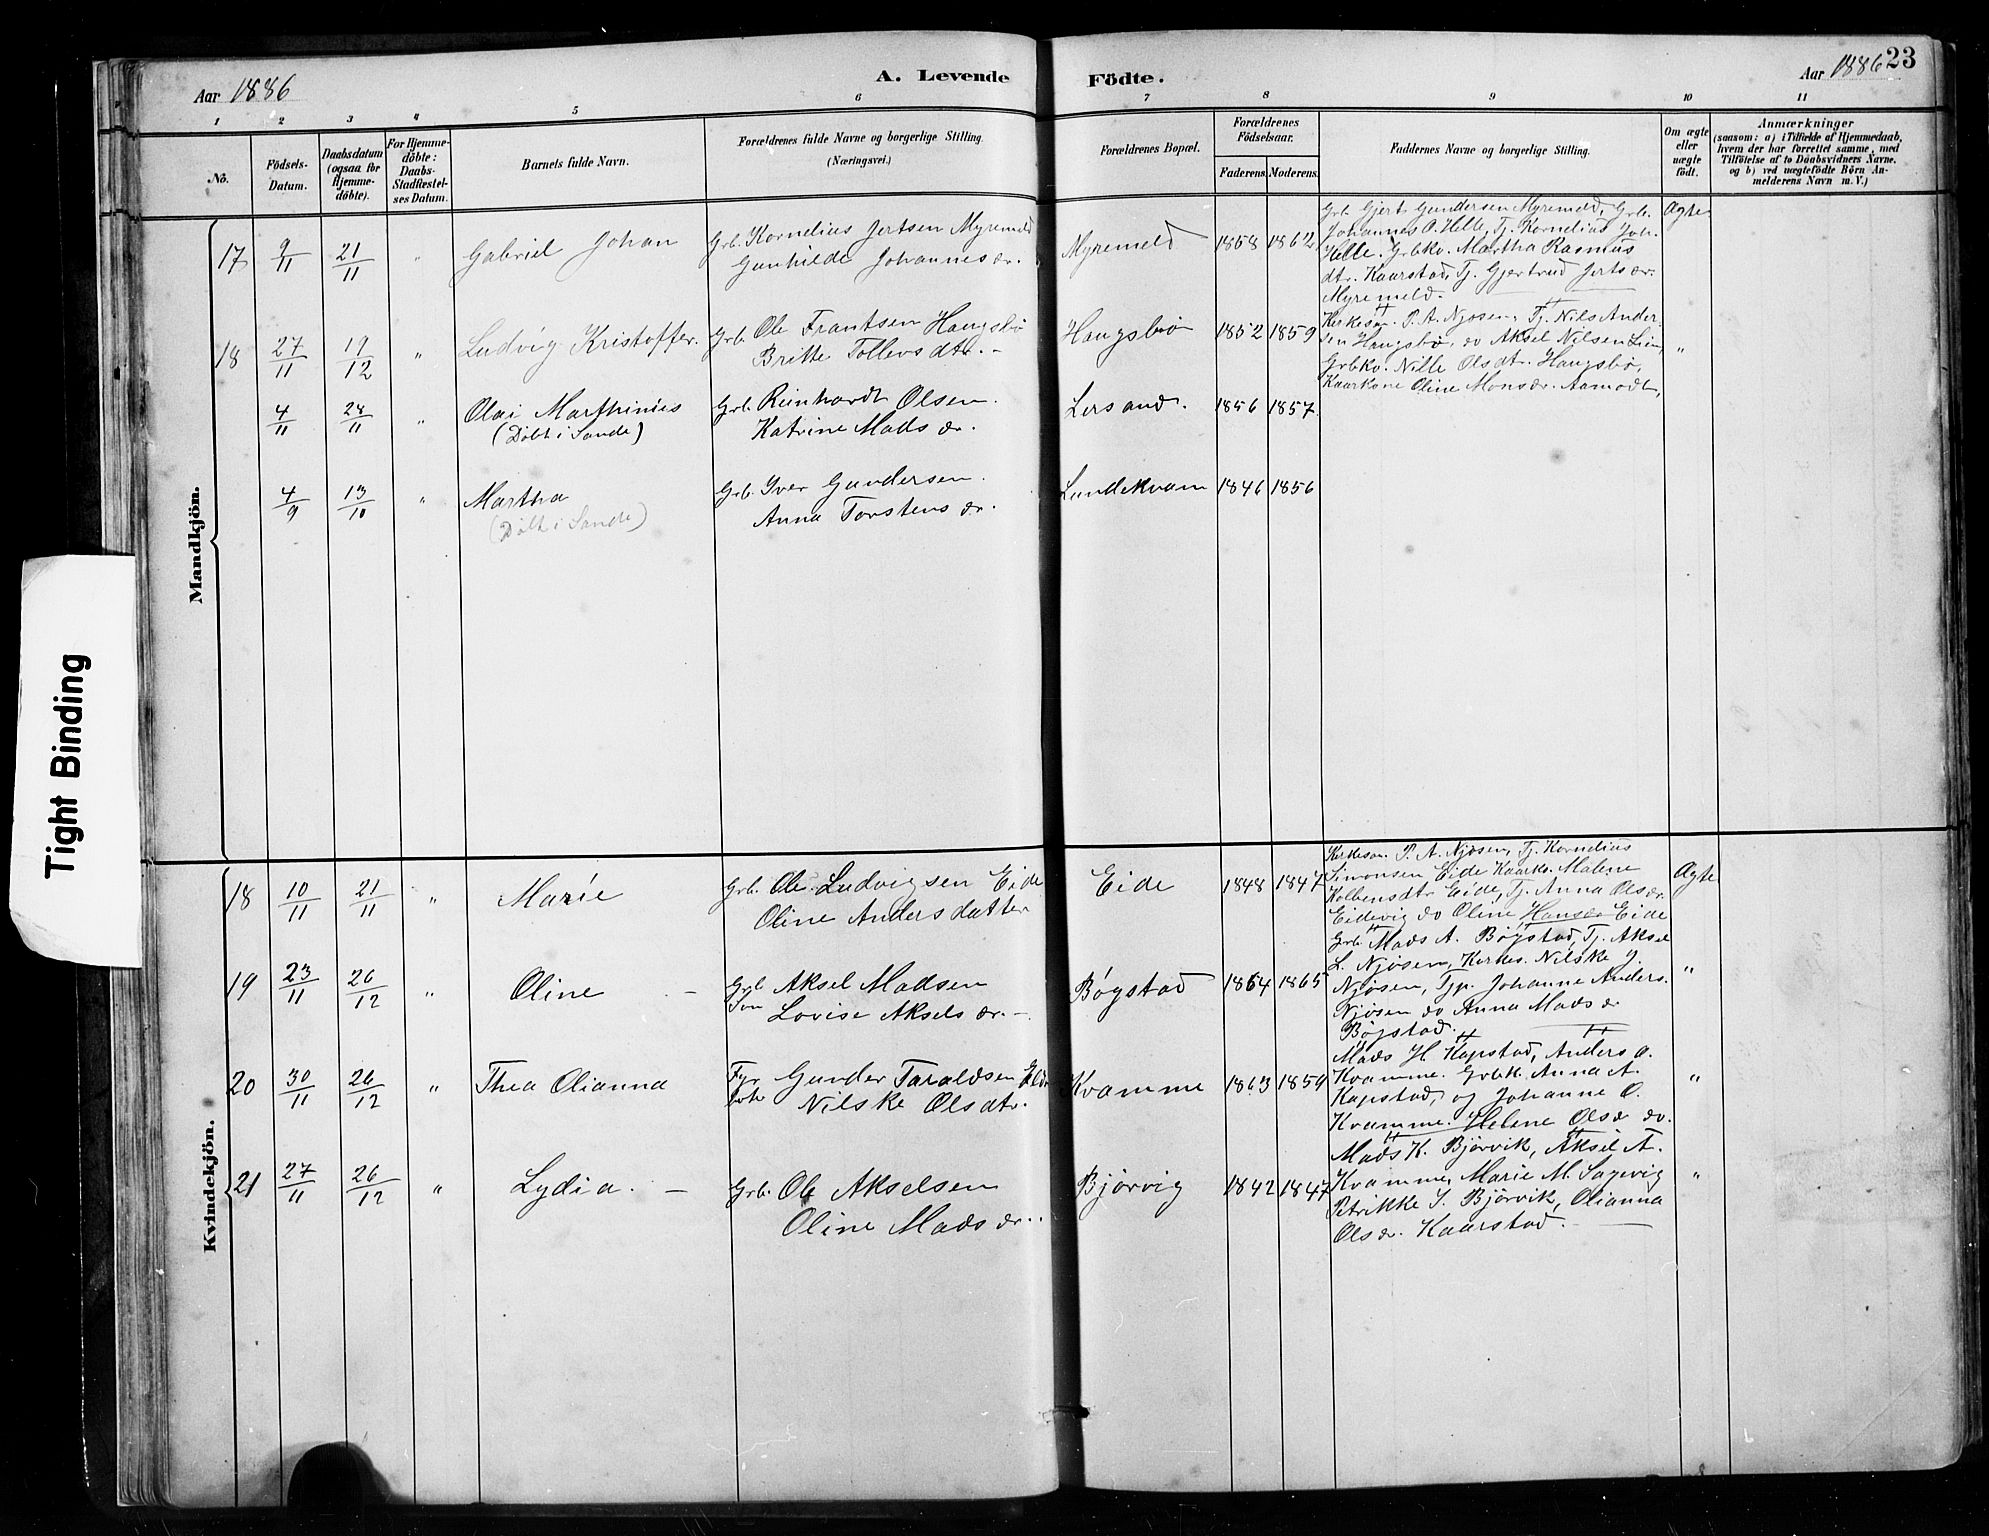 Aar 1886
A. Levende Födte.
Aar 1886 23
1 2 3 4 5 6 7 8 9 10 11
Nö.
Födsels-Datum.
Daabsdatum (ogsaa for Hjemme-döbte).
For Hjemme-döbte: Daabs-Stadfæstel-ses Datum.
Barnets fulde Navn.
Forældrenes fulde Navne og borgerlige Stilling. (Næringsvei.)
Forældrenes Bopæl.
Forældrenes Födselsaar.
Faderens. Moderens.
Faddernes Navne og borgerlige Stilling.
Om ægte eller uægte födt.
Anmærkninger (saasom: a) i Tilfælde af Hjemmedaab, hvem der har forrettet samme, med Tilföielse af to Daabsvidners Navne. og b) ved uægtefödte Börn An-melderens Navn m. V.)
Mandkjön.
17 9/11 21/11 " Gabriel Johan
Grb. Kornelius Jertsen Myremeld
Gunhilde Johannesdr.
Myremeld 1858 1862
Grb. Gjert Gundersen Myremeld, Grb.
Johannes O. Helle, Tj. Kornelius Joh.
Helle. Grbko. Martha Rasmus
dtr. Kaarstad, Tj. Gjertrud Jertsdr.
Myremeld.
Ægte
18 27/11 19/12 " Ludvig Kristoffer.
Grb. Ole Frantsen Haugsbø
Britte Tollevsdtr. -
Haugsbø 1852 1859
Kirkesan. P. A. Njøsen, Tj. Nils Ander-
sen Haugsbø, do Aksel Nilsen Lien,
Grbko. Nille Olsdtr. Haugsbø,
Kaarkone Oline Monsdr. Aamodt,
"
4/11 28/11 " Olai Marthinus
(Döbt i Sande)
Grb. Reinhardt Olsen.
Katrine Madsdr.
Lersand. 1856 1857
4/9 13/10 " Martha
(Döbt i Sande)
Grb. Iver Gundersen.
Anna Torstensdr.
Lundekvam 1846 1856
Tight Binding
Kvindekjön.
18 10/11 21/11 " Marie
Grb. Ole Ludvigsen Eide
Oline Andersdatter
Eide 1848 1847
Kirkesan. P. A. Njøsen, Tj. Kornelius
Simonsen Eide Kaarko. Malene
Kolbensdtr Eide, Tj. Anna Olsdr.
Eidevig do Oline Hansdr Eide
Ægte
19 23/11 26/12 " Oline -
Grb Aksel Madsen
Søn Lovise Akselsdr. -
Bøgstad 1864 1865
Grb. Mads A. Bøgstad, Tj. Aksel
L. Njøsen, Kirkes. Nilske J.
Njøsen, Tjp. Johanne Anders.
Njøsen do Anna Madsdr
Bøgstad.
"
20 30/11 26/12 " Thea Olianna
Gunder Taraldsen
Nilske Olsdtr.
Kvamme 1863 1859
Mads H. Kapstad, Anders A.
Kvamme. Grbk. Anna A.
Kapstad, og Johanne O.
Kvamme. Helene Olsdr do.
"
21 27/11 26/12 " Lydia. -
Grb. Ole Akselsen
Oline Madsdr..
Bjørvig 1842 1847
Mads K. Bjørvik, Aksel A.
Kvamme, Marie M. Sagevig
Petrikke S. Bjørvik, Olianna
Olsdr. Kaarstad.
"